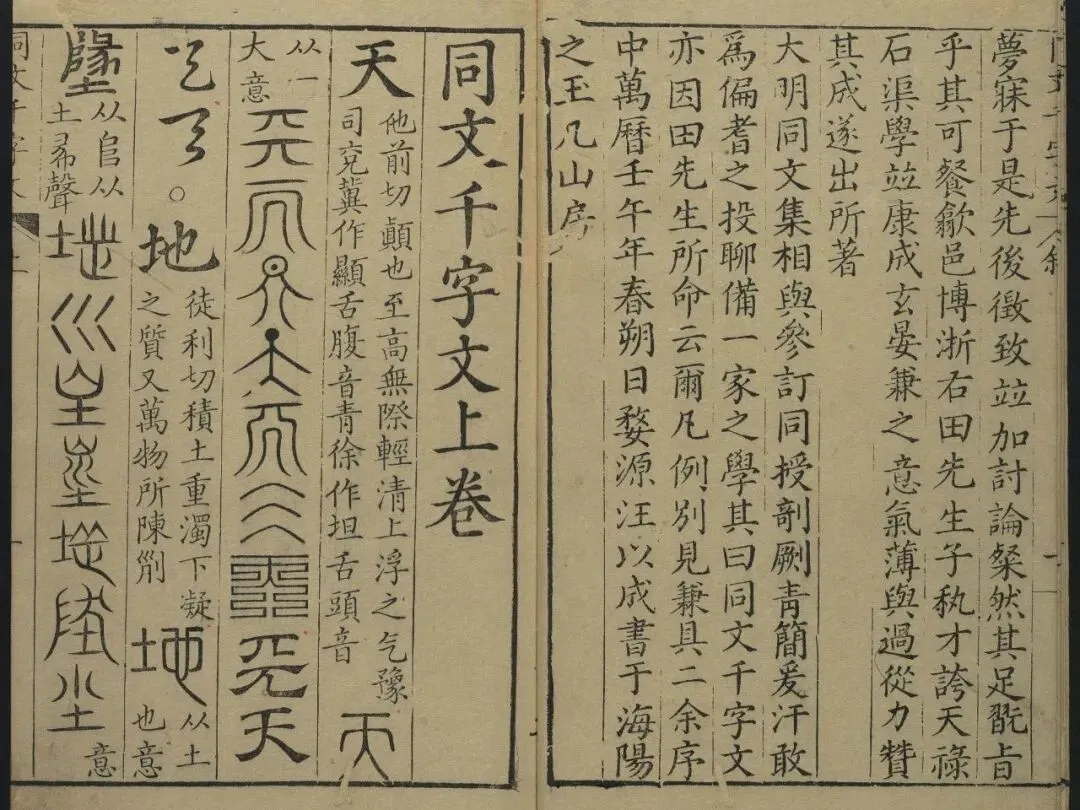 夢寐于是先後徵致竝加討論粲然其足翫㫖
乎其可餐歙邑博浙右田先生子秇才誇天祿
石渠學竝康成玄晏兼之意氣薄與過從力贊
其成遂出所著
大明同文集相與參訂同授剞劂青簡爰汗敢
為偏耆之投聊備一家之學其曰同文千字文
亦因田先生所命云爾凡例別見兼具二余序
中萬曆壬午年春朔日婺源汪以成書于海陽
之玉几山房
同文千字文上卷
天 他前切顛也至高無際輕清上浮之气豫
司兗冀作顯舌腹音青徐作坦舌頭音
从一
大意
天
地 徒利切積土重濁下凝
之質又萬物所陳𠛱
从土
也意
墬 从𨸏从
土㣇聲
意